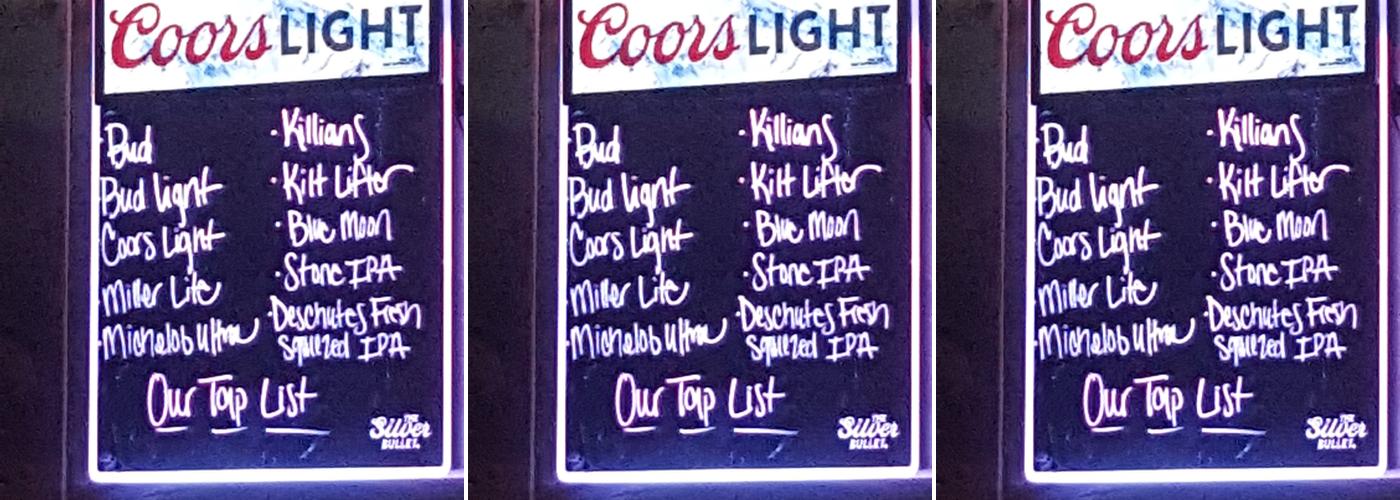 Coors LIGHT
Bud
Bud light
Coors Light
Miller Lite
Michelob Ultra
Killians
Kilt Lifter
Blue Moon
Stone IPA
Deschutes Fresh
Squeezed IPA
Our Tap List
THE
Silver
BULLET.
Coors LIGHT
Bud
Bud light
Coors Light
Miller Lite
Michelob Ultra
Killians
Kilt Lifter
Blue Moon
Stone IPA
Deschutes Fresh
Squeezed IPA
Our Tap List
THE
Silver
BULLET.
Coors LIGHT
Bud
Bud light
Coors Light
Miller Lite
Michelob Ultra
Killians
Kilt Lifter
Blue Moon
Stone IPA
Deschutes Fresh
Squeezed IPA
Our Tap List
THE
Silver
BULLET.